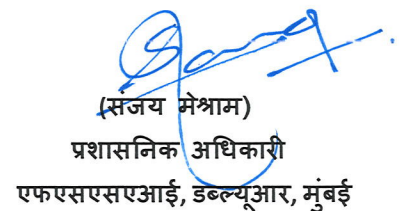 (संजय मेश्राम)
प्रशासनिक अधिकारी
एफएसएसएआई, डब्ल्यूआर, मुंबई